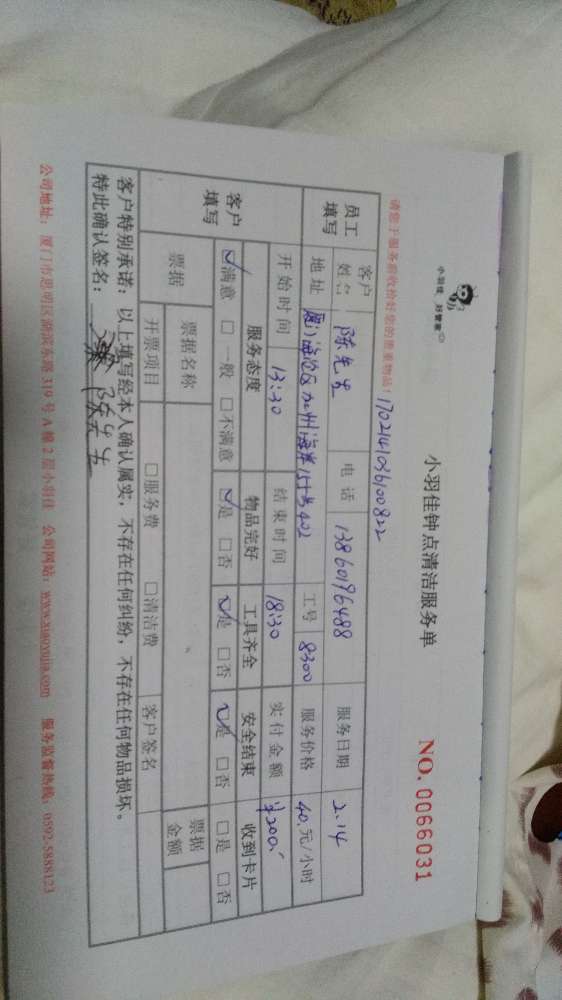 小羽佳 好管家
小羽佳钟点清洁服务单
NO. 0066031
请您于服务前收拾好您的贵重物品!
170214103610082
员工填写 客户姓名 陈先生 电话 13860196488 服务日期 2.14
地址 厦门海沧区加州海岸15号402 工号 8300 服务价格 40 元/小时
开始时间 13:30 结束时间 18:30 实付金额 ¥200
客户填写 服务态度 物品完好 工具齐全 安全结束 收到卡片
☑满意 □一般 □不满意 ☑是 □否 ☑是 □否 ☑是 □否 □是 □否
票据 票据名称 票据金额
开票项目 □服务费 □清洁费 客户签名
客户特别承诺:以上填写经本人确认属实,不存在任何纠纷,不存在任何物品损坏。
特此确认签名:
公司地址:厦门市思明区湖滨东路 319 号 A 幢 2 层小羽佳 公司网站:www.xiaoyujia.com 服务监督热线:0592-5888123